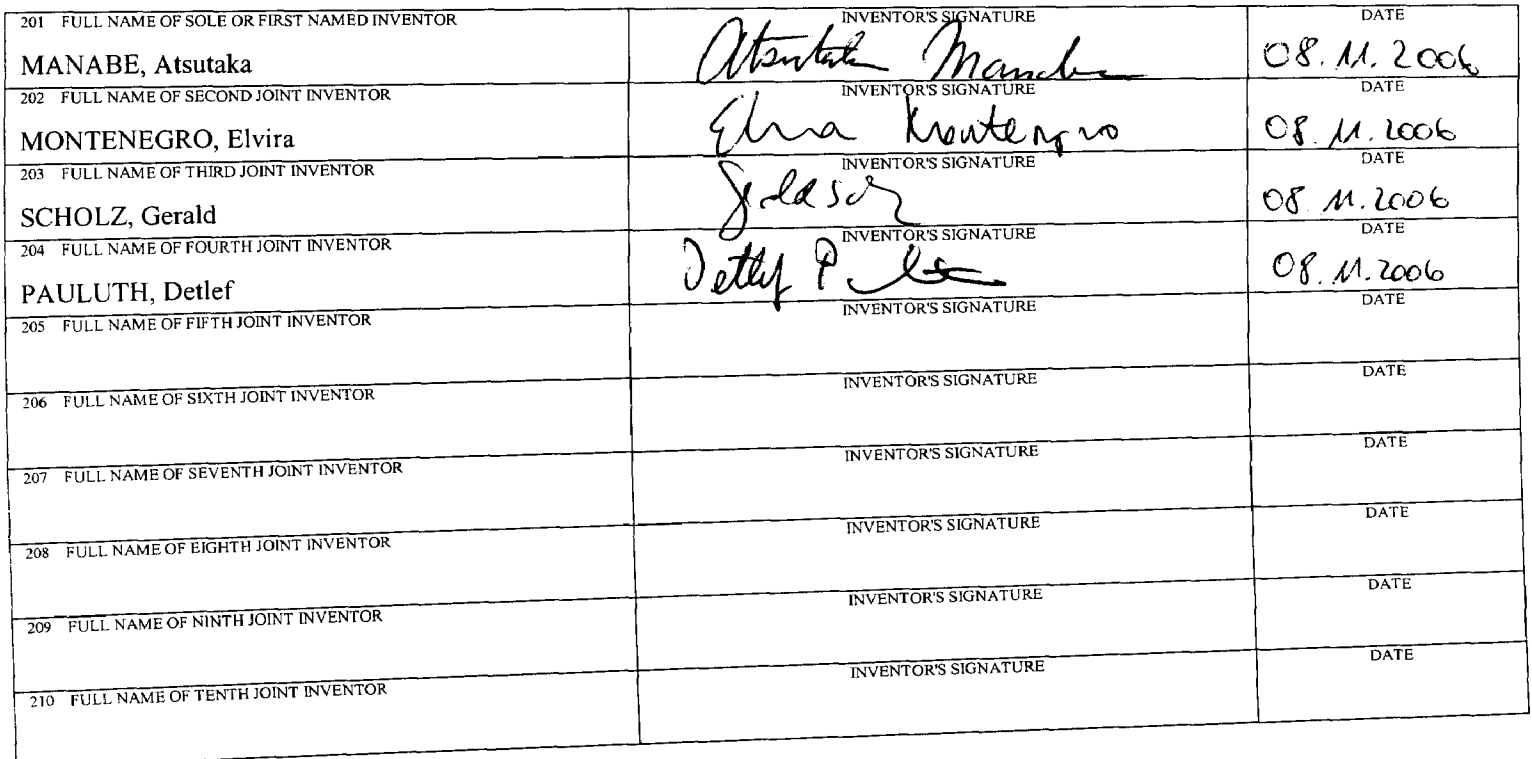 201 FULL NAME OF SOLE OR FIRST NAMED INVENTOR INVENTOR'S SIGNATURE DATE
MANABE, Atsutaka Atsutaka Manabe 08.11.2006
202 FULL NAME OF SECOND JOINT INVENTOR INVENTOR'S SIGNATURE DATE
MONTENEGRO, Elvira Elvira Montenegro 08.11.2006
203 FULL NAME OF THIRD JOINT INVENTOR INVENTOR'S SIGNATURE DATE
SCHOLZ, Gerald 08.11.2006
204 FULL NAME OF FOURTH JOINT INVENTOR INVENTOR'S SIGNATURE DATE
PAULUTH, Detlef Detlef P 08.11.2006
205 FULL NAME OF FIFTH JOINT INVENTOR INVENTOR'S SIGNATURE DATE
206 FULL NAME OF SIXTH JOINT INVENTOR INVENTOR'S SIGNATURE DATE
207 FULL NAME OF SEVENTH JOINT INVENTOR INVENTOR'S SIGNATURE DATE
208 FULL NAME OF EIGHTH JOINT INVENTOR INVENTOR'S SIGNATURE DATE
209 FULL NAME OF NINTH JOINT INVENTOR INVENTOR'S SIGNATURE DATE
210 FULL NAME OF TENTH JOINT INVENTOR INVENTOR'S SIGNATURE DATE